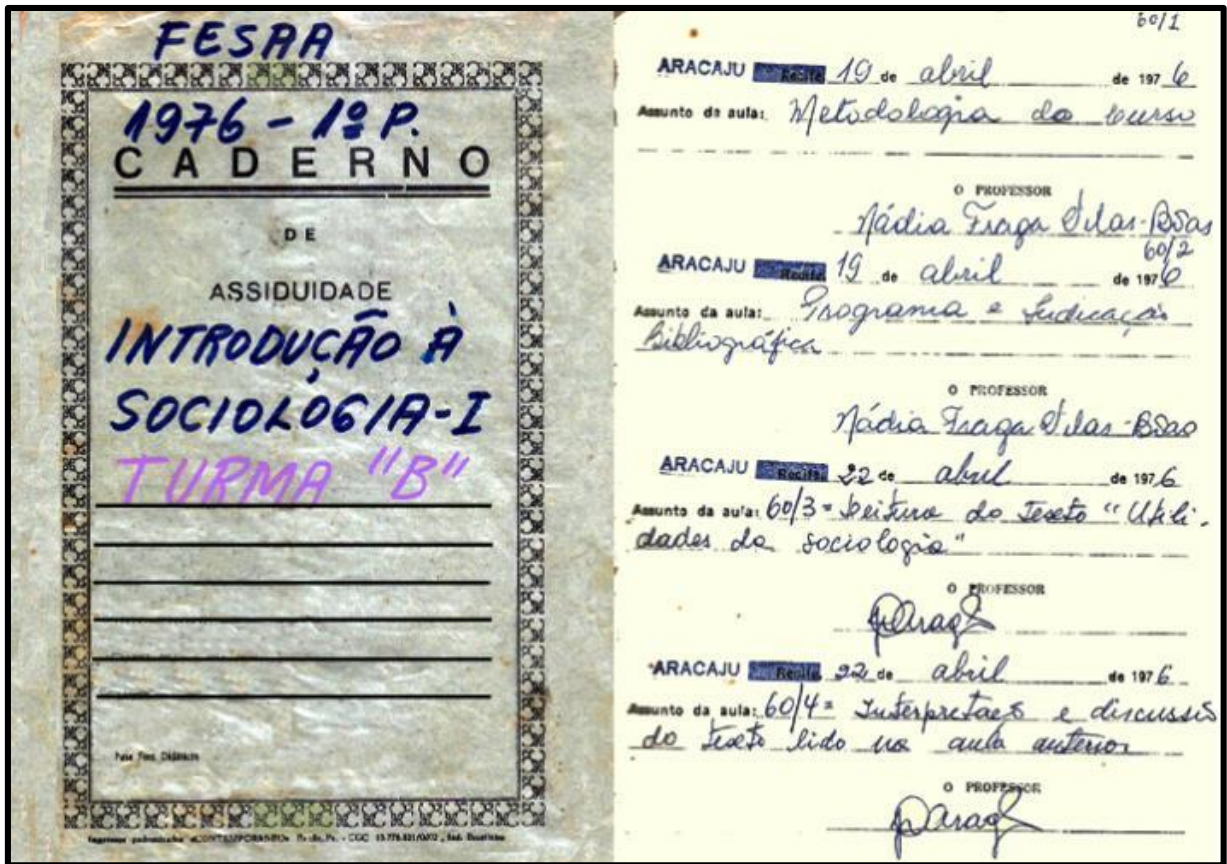 FESAA
1976 - 1º P.
CADERNO
DE
ASSIDUIDADE
INTRODUÇÃO À
SOCIOLOGIA-I
TURMA "B"
Para Fins Didáticos
Impressos padronizados «CONTEMPORANEO» Recife, Pe. - CGC
60/1
ARACAJU Recife 19 de abril de 1976
Assunto da aula: Metodologia do curso
O PROFESSOR
Nádia Fraga Vilas-Bôas
60/2
ARACAJU Recife 19 de abril de 1976
Assunto da aula: Programa e Indicação
Bibliográfica
O PROFESSOR
Nádia Fraga Vilas-Bôas
ARACAJU Recife 22 de abril de 1976
Assunto da aula: 60/3 = Leitura do Texto "Utili-
dades da sociologia"
O PROFESSOR
ARACAJU Recife 22 de abril de 1976
Assunto da aula: 60/4 = Interpretação e discussão
do texto lido na aula anterior
O PROFESSOR